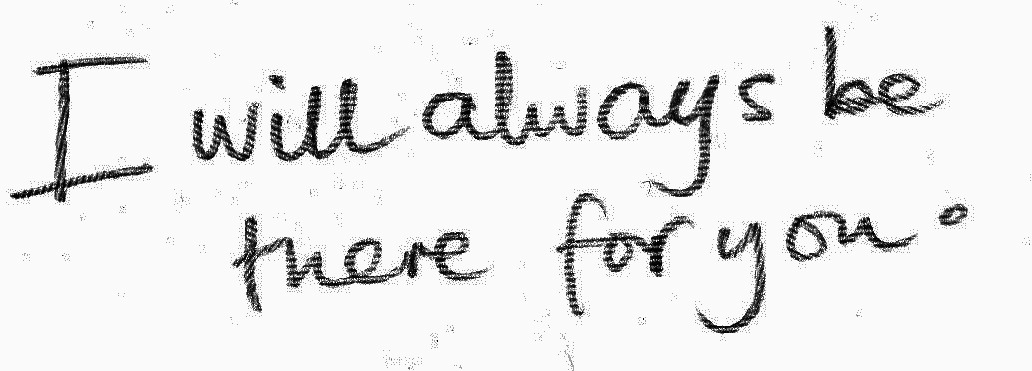 I will always be
there for you.